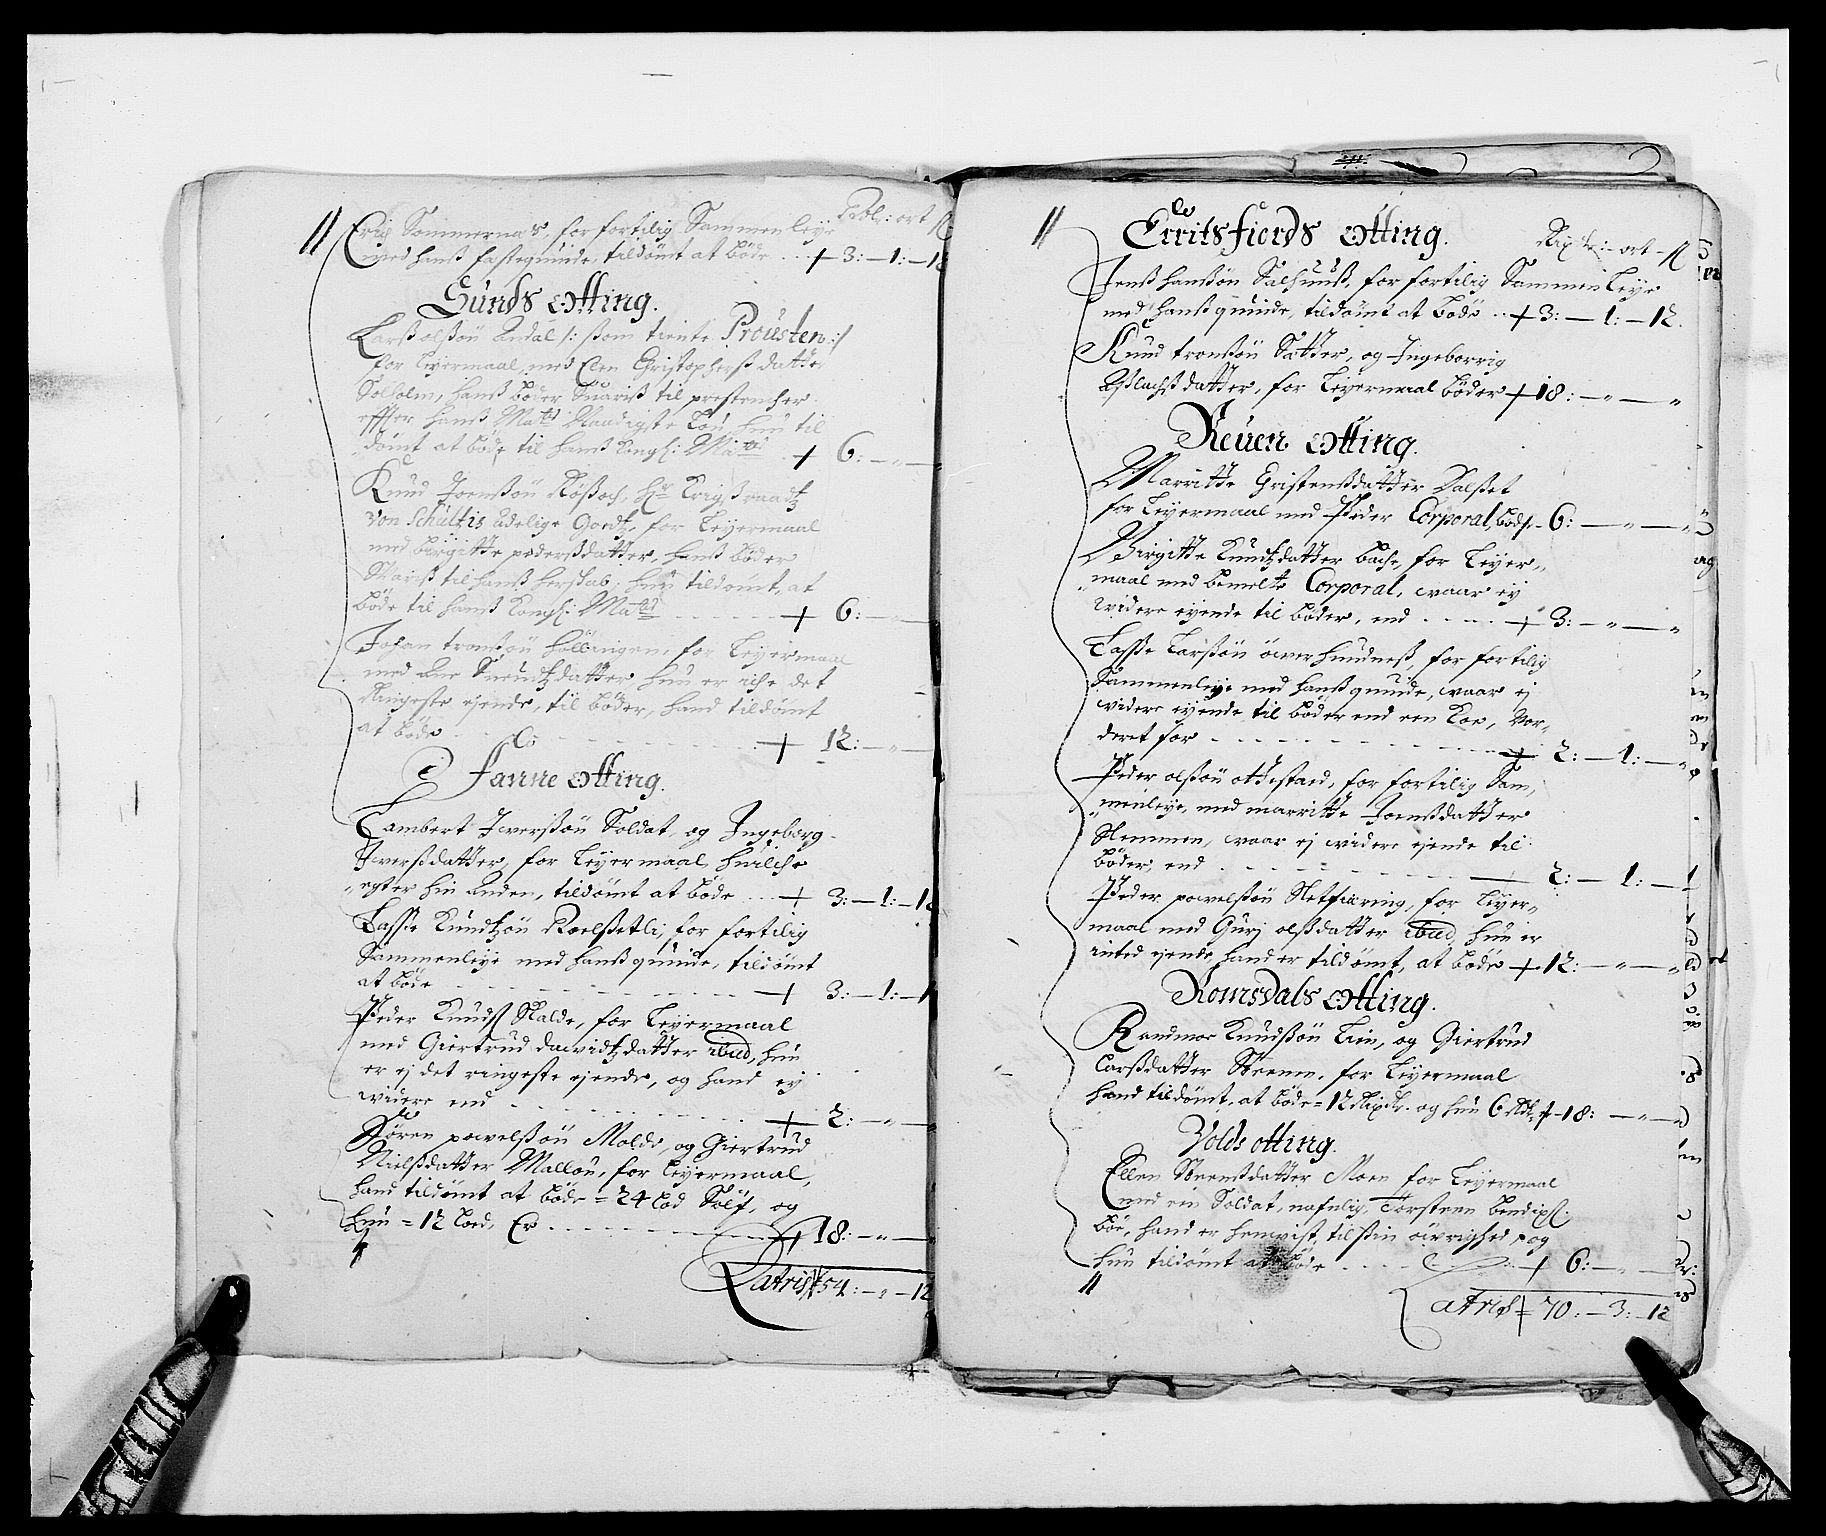 Rdl: ort ß
Erich Sommernas, for fortilig Sammenleye
med hans festequinde, tildömt at böde + 3: — 1: — 12
Sunds otting.
Larß olßön Andal /: ßom tiente Prousten :/
for Leyermaal, med Elen Christopherß datter
Solholm, hanß böder Suariß til presten her
effter hanß Maÿts Naadigste Lou, hun til
dömt at böde til hanß Kongl: Maÿts + 6: — " —
Knud Joenßön Röß och, Hr Krigßraadtz
Von Schultis Adelige Goedtz, for Leyermaal
med birgitte pederßdatter, hanß böder
Svariß til hanß herskab, hun tildömt, at
böde til hanß Kongl: Mayts + 6: — " —
Johan tronßön Hollingen, for Leyermaal
med Ane Sneudtzdatter hun er iche det
Ringeste ejende, til böder, hand tildömt
at böde + 12: — " —
Fanne otting.
Lambert Iverßön Soldat, og Ingeborg
Iverßdatter, for Leyermaal, huilche
egter hin Anden, tildömt at böde + 3: — 1: — 12
Lasse Knudtzön Roelßetli, for fortilig
Sammenleye med hanß quinde, tildömt
at böde + 3: — 1: — 1
Peder Knudß Skalde, for Leyermaal
med Giertrud davidtzdatter ibid, hun
er ej det ringeste ejende, og hand ey
widere end + 2: — " —
Sören powelßön Molde, og Giertrud
Nielßdatter Mallou, for Leyermaal,
hand tildömt at böde = 24 Lod Sölf, og
hun = 12 Loed, Er + 18: — " —
Latris 54: — " — 12
Erritsfiords otting.
Rixdr: ort — ß
Jenß hanßön Salhuuß, for fortilig Sammenleye
med hanß quinde, tildömt at böde + 3: — 1: — 12.
Knud tronßön Sötter, og Ingeborrig
Aßlachß datter, for Leyermaal böder + 18: — " — "
Reuen otting.
Marritte Cristenßdatter Salßet
for Leyermaal med Peder Corporal, böde — 6: — " — "
Birgitte Knudtzdatter bache, for Leyer
maal med bemelte Corporal, waar ey
widere eyende til böder, end + 3: — " — "
Lasse Larßön överhundneß, for fortilig
Sammenleye med hanß quinde, waar ej
widere eyende til böder end een Koe, Vor-
deret for + 2: — 1: — "
Peder olßön ottestad, for fortilig Sam
menleye, med marritte Joenßdatter
Stemmen, waar ej widere ejende til
böder, end — 2: — 1: —
Peder powelßön Slettfiering, for Leyer-
maal med Gurj olßdatter ibid, hun er
inted ejende, hand er tildömt, at böde + 12: — " — "
Romsdals otting.
Randmor Knudßön Lien, og Giertrud
Larßdatter Störem, for Leyermaal
hand tildömt, at böde = 12 Rixdr. og hun 6 Rdr + 18: — " —
Volds otting.
Ellen Störenßdatter Moen for Leyermaal
med een Soldat, nafnlig, Torsteen Bendixß:
böe, hand er henvist til sin övrighed, og
hun tildömt at böde + 6: — " —
Latris = 70: — 3: — 12